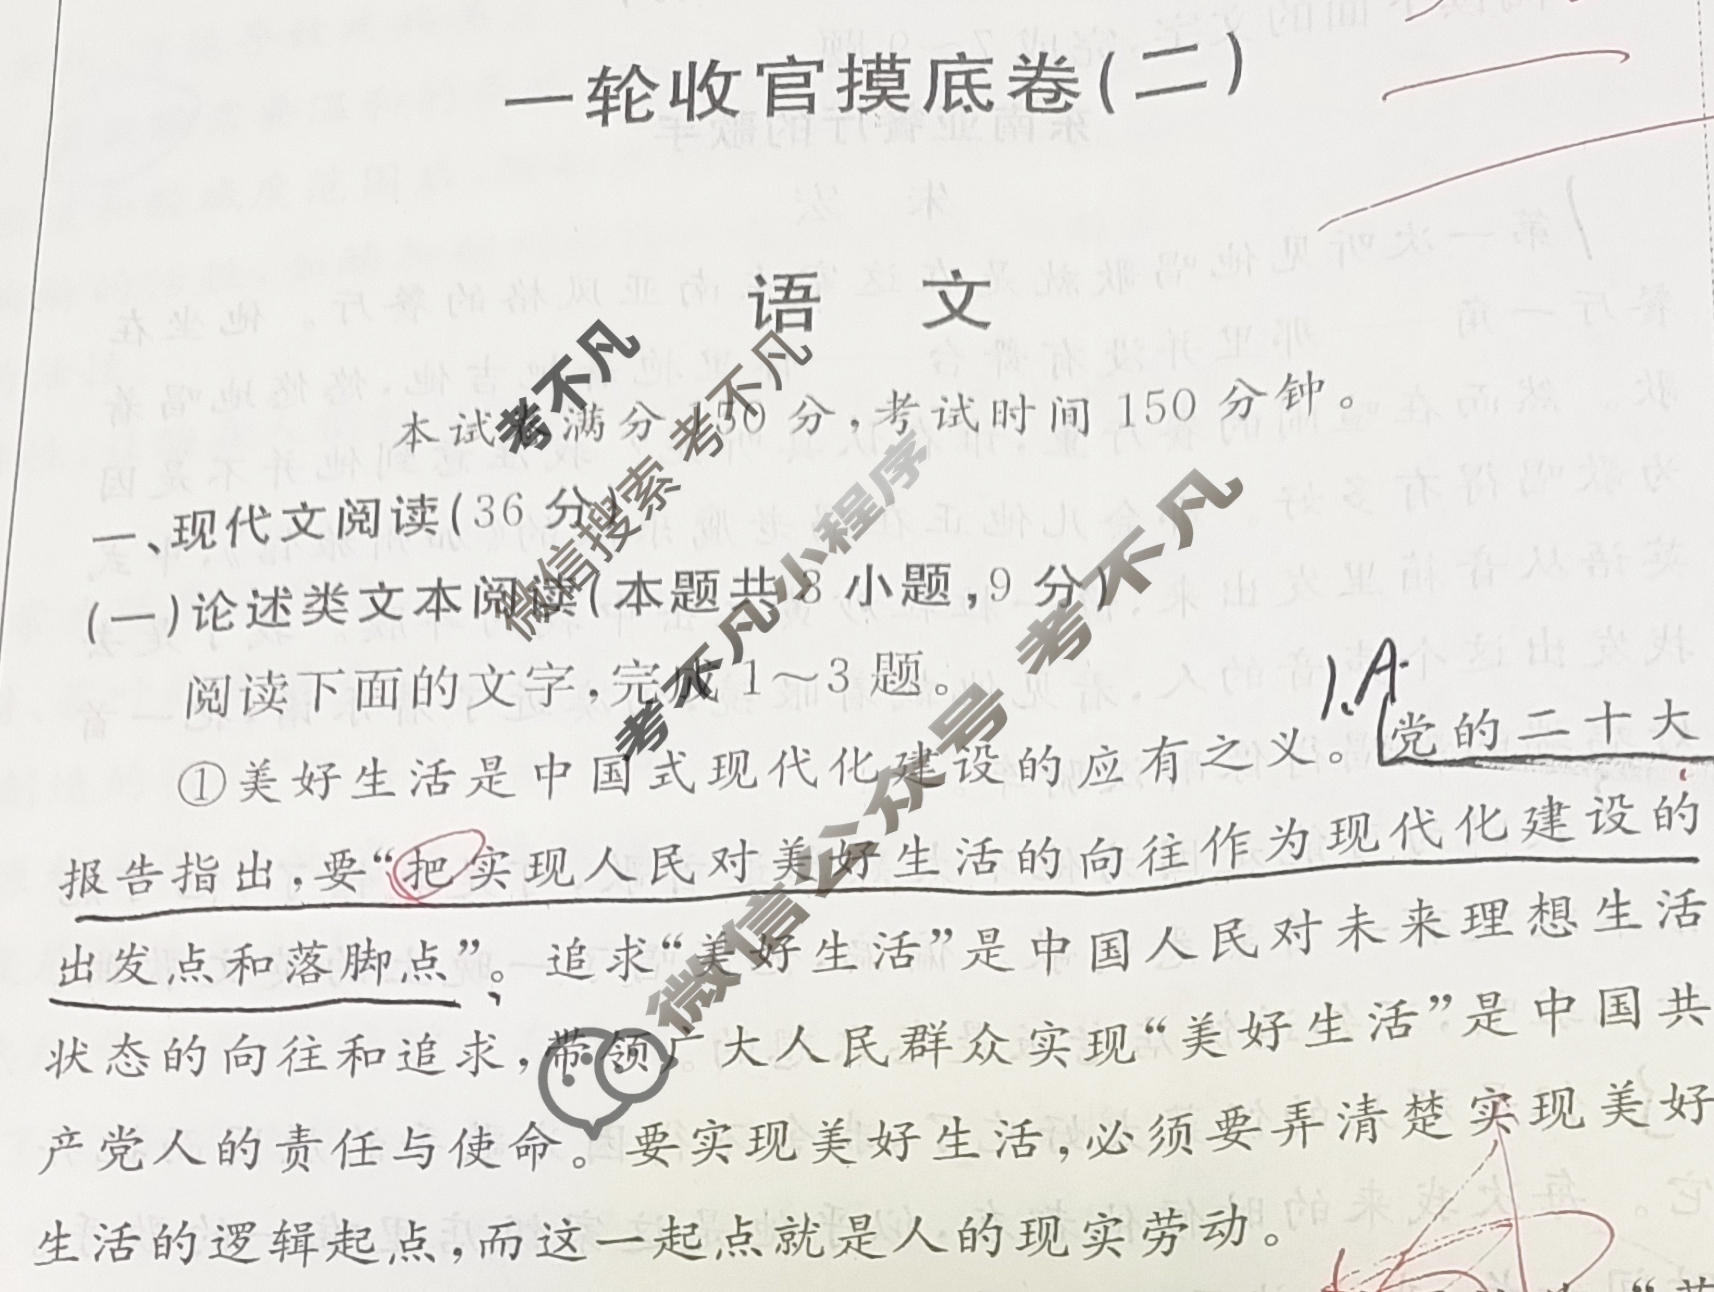 一轮收官摸底卷(二)
语 文
本试卷满分150分,考试时间150分钟。
一、现代文阅读(36分)
(一)论述类文本阅读(本题共3小题,9分)
阅读下面的文字,完成1~3题。
1.A
①美好生活是中国式现代化建设的应有之义。党的二十大
报告指出,要“把实现人民对美好生活的向往作为现代化建设的
出发点和落脚点”。追求“美好生活”是中国人民对未来理想生活
状态的向往和追求,带领广大人民群众实现“美好生活”是中国共
产党人的责任与使命。要实现美好生活,必须要弄清楚实现美好
生活的逻辑起点,而这一起点就是人的现实劳动。
考不凡
微信搜索 考不凡
考不凡小程序
微信公众号 考不凡